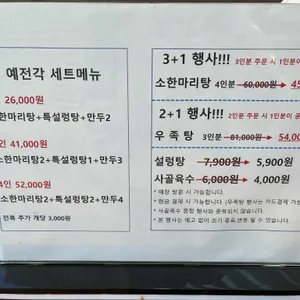 예전각 세트메뉴
26,000원
소한마리탕+특설렁탕+만두2
인 41,000원
소한마리탕2+특설렁탕1+만두3
4인 52,000원
소한마리탕2+특설렁탕2+만두4
전복 추가 개당 3,000원
3+1 행사!!! 3인분 주문 시 1인분이
소한마리탕 4인분 60,000원→45
2+1 행사!!! 2인분 주문 시 1인분이 공
우 족 탕 3인분 81,000원→54,00
설렁탕 7,900원→5,900원
사골육수 6,000원→4,000원
* 매장 방문 시 가능합니다.
* 현금 결제 시 가능합니다. (우족탕 행사는 카드결제 가능
* 사골육수 증정 행사와 중복되지 않습니다.
* 본 행사는 예고 없이 조기 종료·변동 될 수 있습니다.